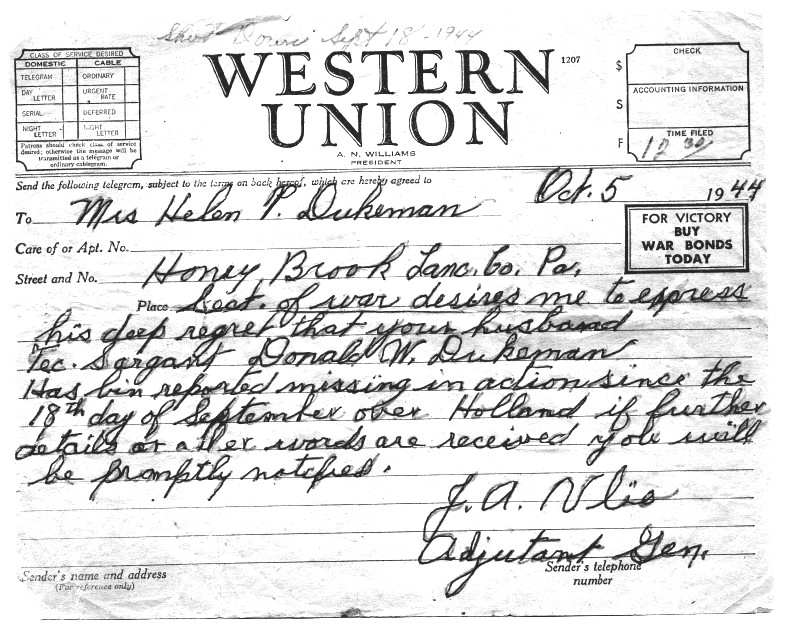 Shot Down Sept 18 - 1944
CLASS OF SERVICE DESIRED
DOMESTIC CABLE
TELEGRAM ORDINARY
DAY LETTER URGENT RATE
SERIAL DEFERRED
NIGHT LETTER NIGHT LETTER
Patrons should check class of service
desired; otherwise the message will be
transmitted as a telegram or
ordinary cablegram.
WESTERN
UNION
1207
A. N. WILLIAMS
PRESIDENT
CHECK
$
ACCOUNTING INFORMATION
S
TIME FILED
F
Send the following telegram, subject to the terms on back hereof, which are hereby agreed to
Oct. 5 1944
To Mrs Helen P. Dukeman
FOR VICTORY
BUY
WAR BONDS
TODAY
Care of or Apt. No.
Street and No. Honey Brook Lanc. Co. Pa.
Place Sect. of war desires me to express
his deep regret that your husband
Tec. Sargant Donald W. Dukeman
Has bin reported missing in action since the
18th day of September over Holland if further
details or ather words are received you will
be promptly notified.
J. A. Ulio
Adjutant Gen.
Sender's name and address
(For reference only)
Sender's telephone
number